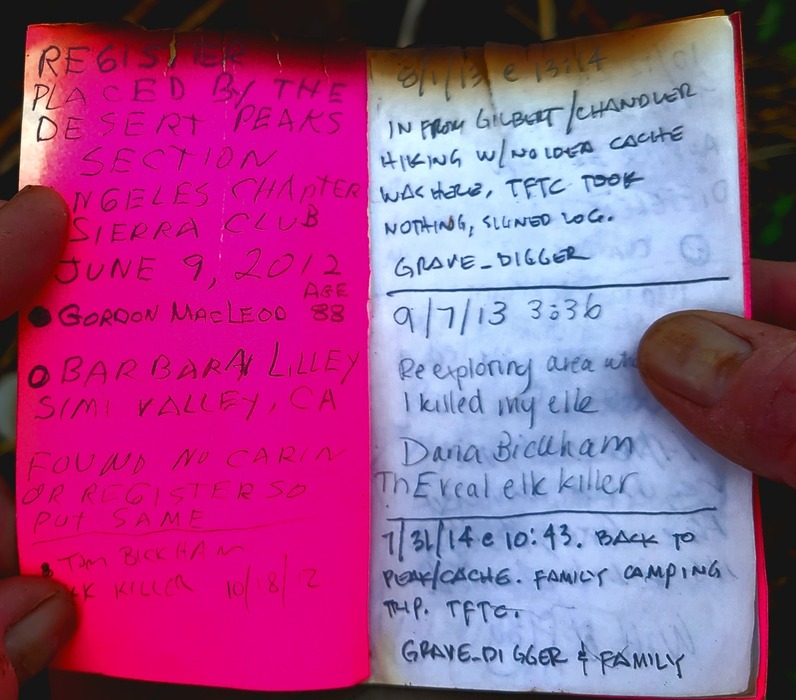 REGISTER
PLACED BY THE
DESERT PEAKS
SECTION
NGELES CHAPTER
SIERRA CLUB
JUNE 9, 2012
AGE
GORDON MACLEOD 88
BARBARA LILLEY
SIMI VALLEY, CA
FOUND NO CARIN
OR REGISTER SO
PUT SAME
TOM BICKHAM
KILLER 10/18/ 2
8/1/13 @ 13:14
IN FROM GILBERT/CHANDLER
HIKING W/NO IDEA CACHE
WAS HERE, TFTC TOOK
NOTHING, SIGNED LOG.
GRAVE_DIGGER
9/7/13 3:36
Re exploring area
I killed my elk
Dana Bickham
ThE real elk killer
7/31/14 @ 10:43. BACK TO
PEAK/CACHE. FAMILY CAMPING
TRIP. TFTC.
GRAVE_DIGGER & FAMILY